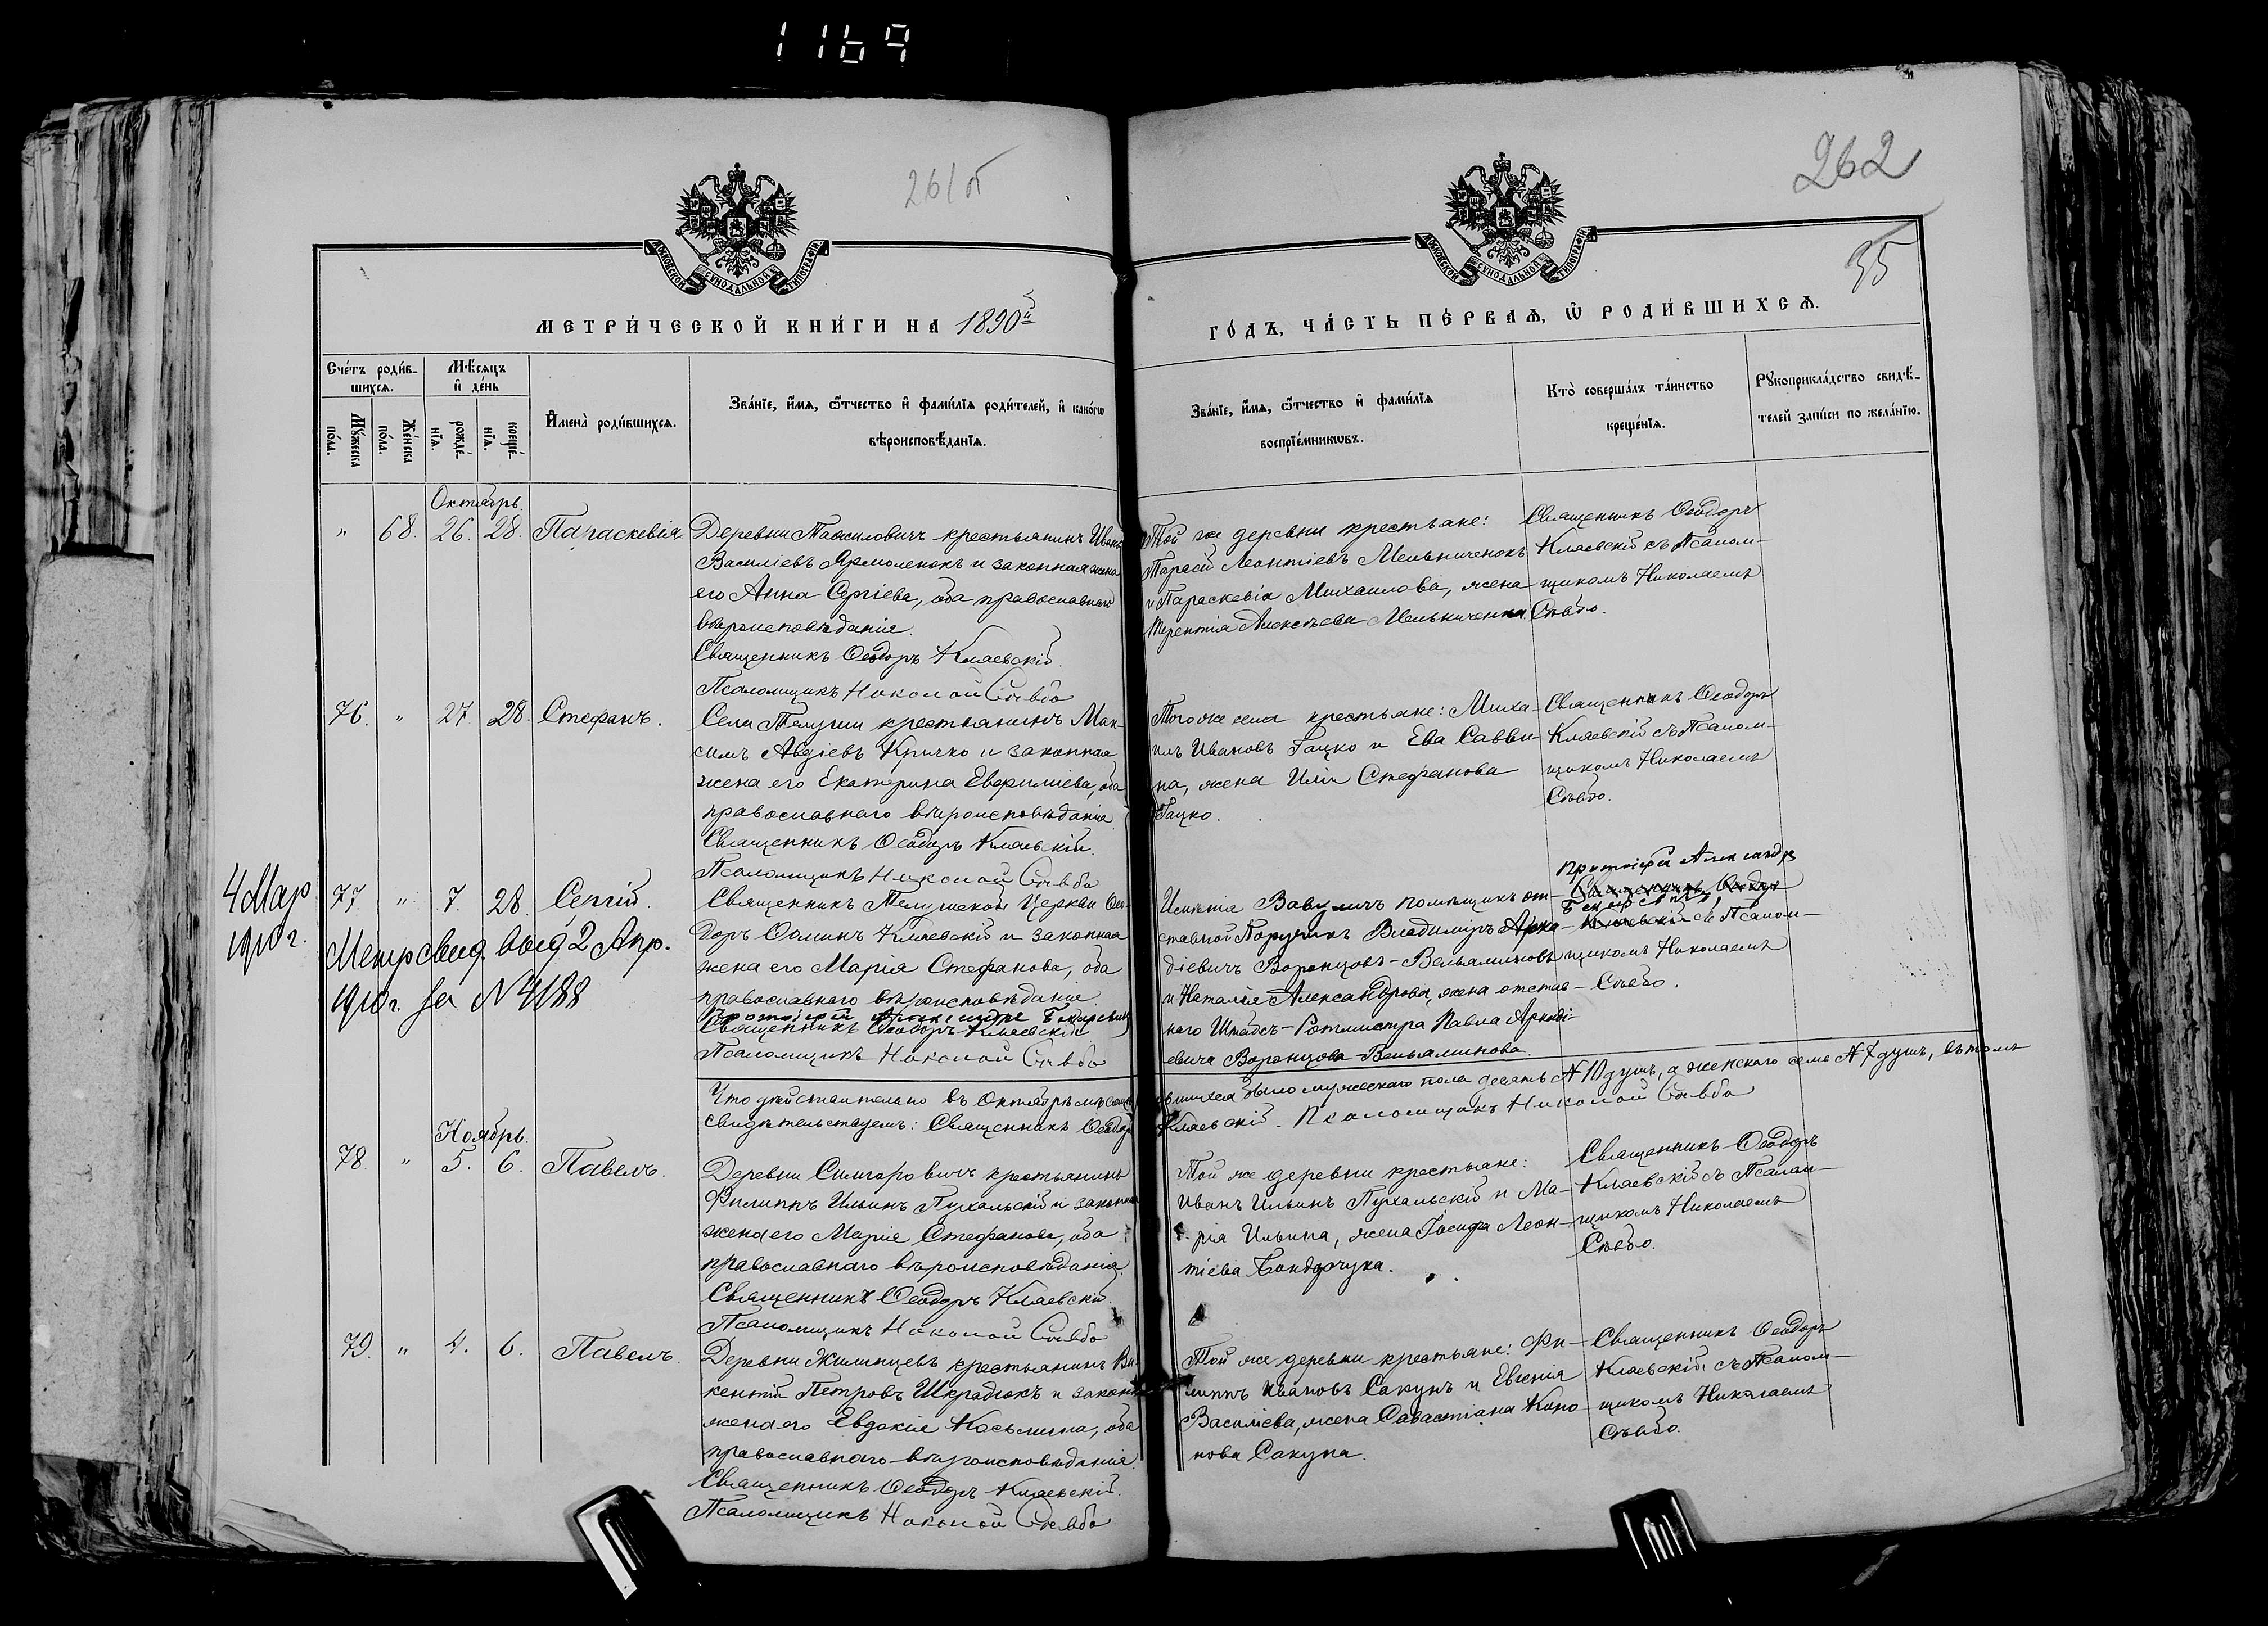 1169
261 об
262
35
МОСКОВСКОЙ СУНОДАЛЬНОЙ ТИПОГРАФІИ
МОСКОВСКОЙ СУНОДАЛЬНОЙ ТИПОГРАФІИ
МЕТРИ́ЧЕСКОЙ КНИ́ГИ НА 1890й
ГО́ДЪ, ЧА́СТЬ ПЕ́РВАѦ, Ѡ РОДИ́ВШИХСѦ.
Сче́тъ роди́в-
шихсѧ.
Мꙋ́жеска
по́ла.
Же́нска
по́ла.
Мѣ́сѧцъ
и҆ де́нь
рожде́-
нїѧ.
креще́-
нїѧ.
И҆мена̀ роди́вшихсѧ.
Зва́нїе, и҆́мѧ, ѻ҆́тчество и҆ фами́лїѧ роди́телей, и҆ како́гѡ
вѣроисповѣ́данїѧ.
Зва́нїе, и҆́мѧ, ѻ҆́тчество и҆ фами́лїѧ
воспрїе́мникѡвъ.
Кто̀ соверша́лъ та́инство
креще́нїѧ.
Рꙋкоприкла́дство свидѣ́-
телей за́писи по жела́нїю.
Октябрь.
" 68. 26. 28. Параскевія.
Деревни крестьянинъ Иванъ
Василіевъ Ярмоленокъ и законная жена
его Анна Сергіева, оба православнаго
вѣроисповѣданія.
Священникъ Ѳеодоръ Кляевскій.
Псаломщикъ Николай Съвбо
Той же деревни крестьяне:
Тарасій Леонтіевъ Мельниченокъ
и Параскевія Михаилова, жена
Терентія Алексѣева Мельниченка.
Священникъ Ѳеодоръ
Кляевскій съ Псалом-
щикомъ Николаемъ
Съвбо.
76. " 27. 28. Стефанъ.
Села Телуши крестьянинъ Мак-
симъ Авдіевъ Кричко и законная
жена его Екатерина Евфиміева, оба
православнаго вѣроисповѣданія.
Священникъ Ѳеодоръ Кляевскій.
Псаломщикъ Николай Съвбо
Того же села крестьяне: Миха-
илъ Ивановъ Гацко и Ева Савви-
на, жена Иліи Стефанова
Гацко.
Священникъ Ѳеодоръ
Кляевскій съ Псалом-
щикомъ Николаемъ
Съвбо.
4 Мар
1910 г.
77. " 7. 28. Сергій.
Метр свид. выд 2 Апр.
1910 г. за № 4188
Священникъ Телушской Церкви Ѳео-
доръ Ѳоминъ Кляевскій и законная
жена его Марія Стефанова, оба
православнаго вѣроисповѣданія.
Протоіерей Александръ
Священникъ Ѳеодоръ Кляевскій
Псаломщикъ Николай Съвбо
Имѣнія Вавуличъ помѣщикъ от-
ставной Поручикъ Владиміръ Арка-
діевичъ Воронцовъ-Вельяминовъ
и Наталія Александрова, жена отстав-
ного Штабсъ-Ротмистра Павла Аркаді-
евича Воронцова-Вельяминова.
Протоіерей Александръ
Священникъ Ѳеодоръ
Кляевскій съ Псалом-
щикомъ Николаемъ
Съвбо.
Что дѣйствительно въ Октябрѣ мѣсяцѣ
вшихся было мужескаго пола десять № 10 душъ, а женскаго семь № 7 душъ, въ томъ
свидѣтельствуемъ: Священникъ Ѳеодоръ
Кляевскій. Псаломщикъ Николай Съвбо
Ноябрь.
78. " 5. 6. Павелъ.
Деревни крестьянинъ
Филиппъ Ильинъ Пухальскій и законная
жена его Марія Стефанова, оба
православнаго вѣроисповѣданія.
Священникъ Ѳеодоръ Кляевскій
Псаломщикъ Николай Съвбо
Той же деревни крестьяне:
Иванъ Ильинъ Пухальскій и Ма-
рія Ильина, жена Іосифа Леон-
тіева Бондарчука.
Священникъ Ѳеодоръ
Кляевскій съ Псалом-
щикомъ Николаемъ
Съвбо.
79. " 4. 6. Павелъ.
Деревни Жилинцевъ крестьянинъ Ви-
кентій Петровъ Шкрадюкъ и законная
жена его Евдокія Косьмина, оба
православнаго вѣроисповѣданія.
Священникъ Ѳеодоръ Кляевскій.
Псаломщикъ Николай Съвбо
Той же деревни крестьяне: Фи-
липпъ Ивановъ Сакунъ и Евгенія
Василіева, жена Савастіана Коно-
нова Сакуна.
Священникъ Ѳеодоръ
Кляевскій съ Псалом-
щикомъ Николаемъ
Съвбо.